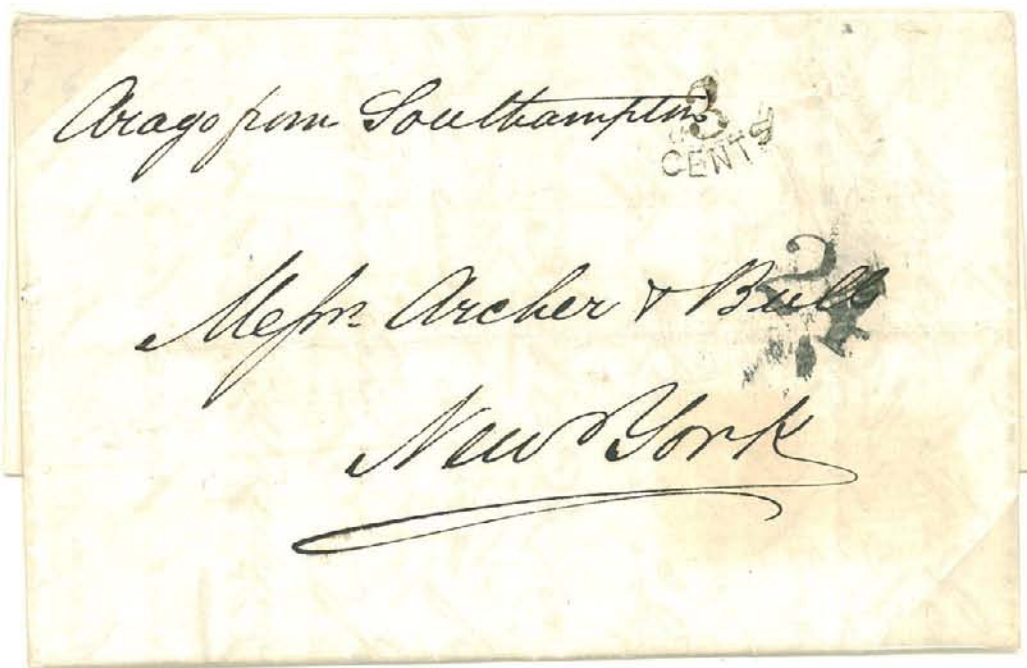 Arago from Southampton
3
CENTS
Messrs Archer & Bull
24
New York